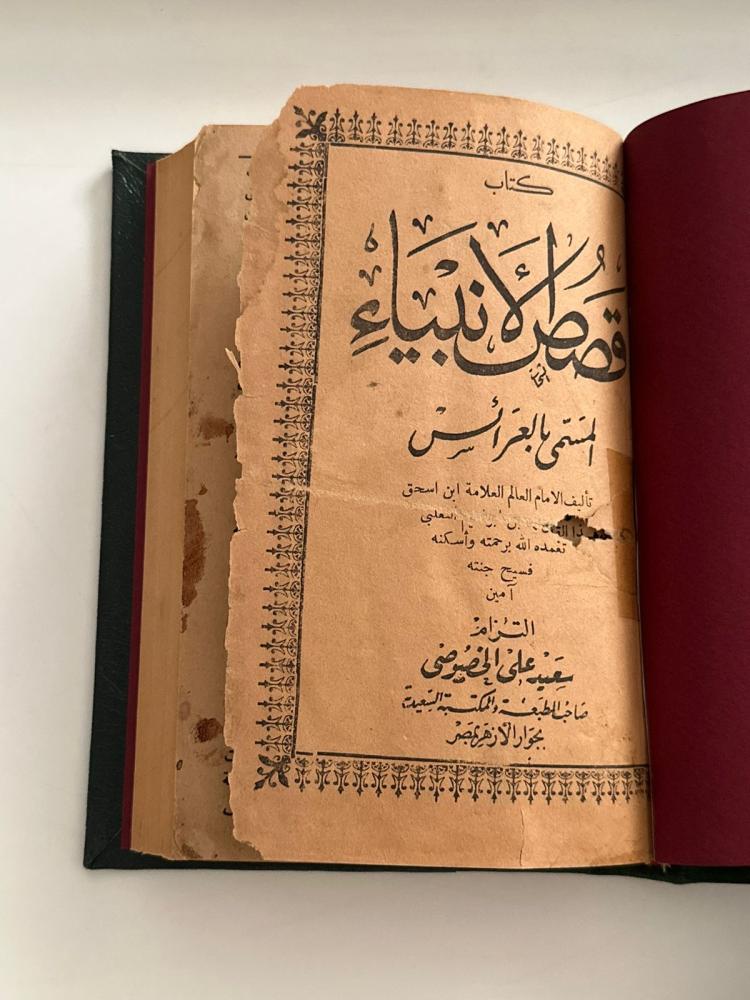 كتاب
قصص الأنبياء
المسمى بالعرائس
تأليف الامام العالم العلامة ابن اسحق
الثعلبي
تغمده الله برحمته وأسكنه
فسيح جنته
آمين
التزام
سعيد على الخصوصى
صاحب المطبعة والمكتبة السعيدية
بجوار الازهر بمصر